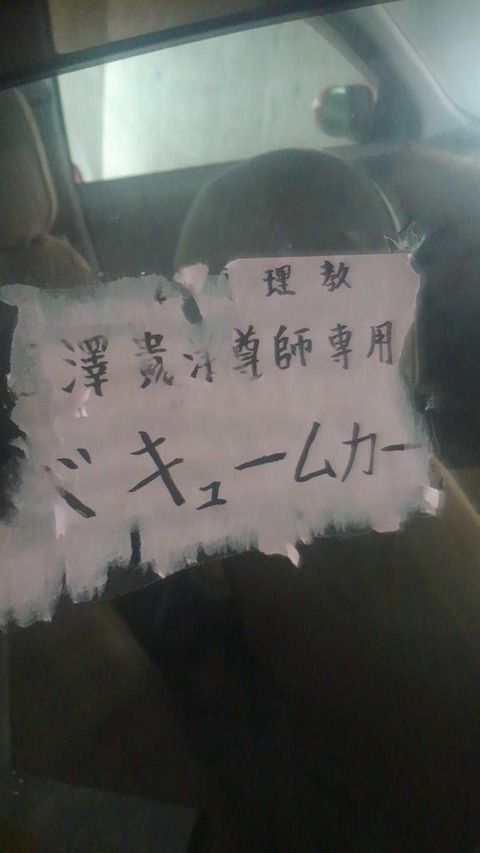 理教
澤貴洋尊師専用
バキュームカー